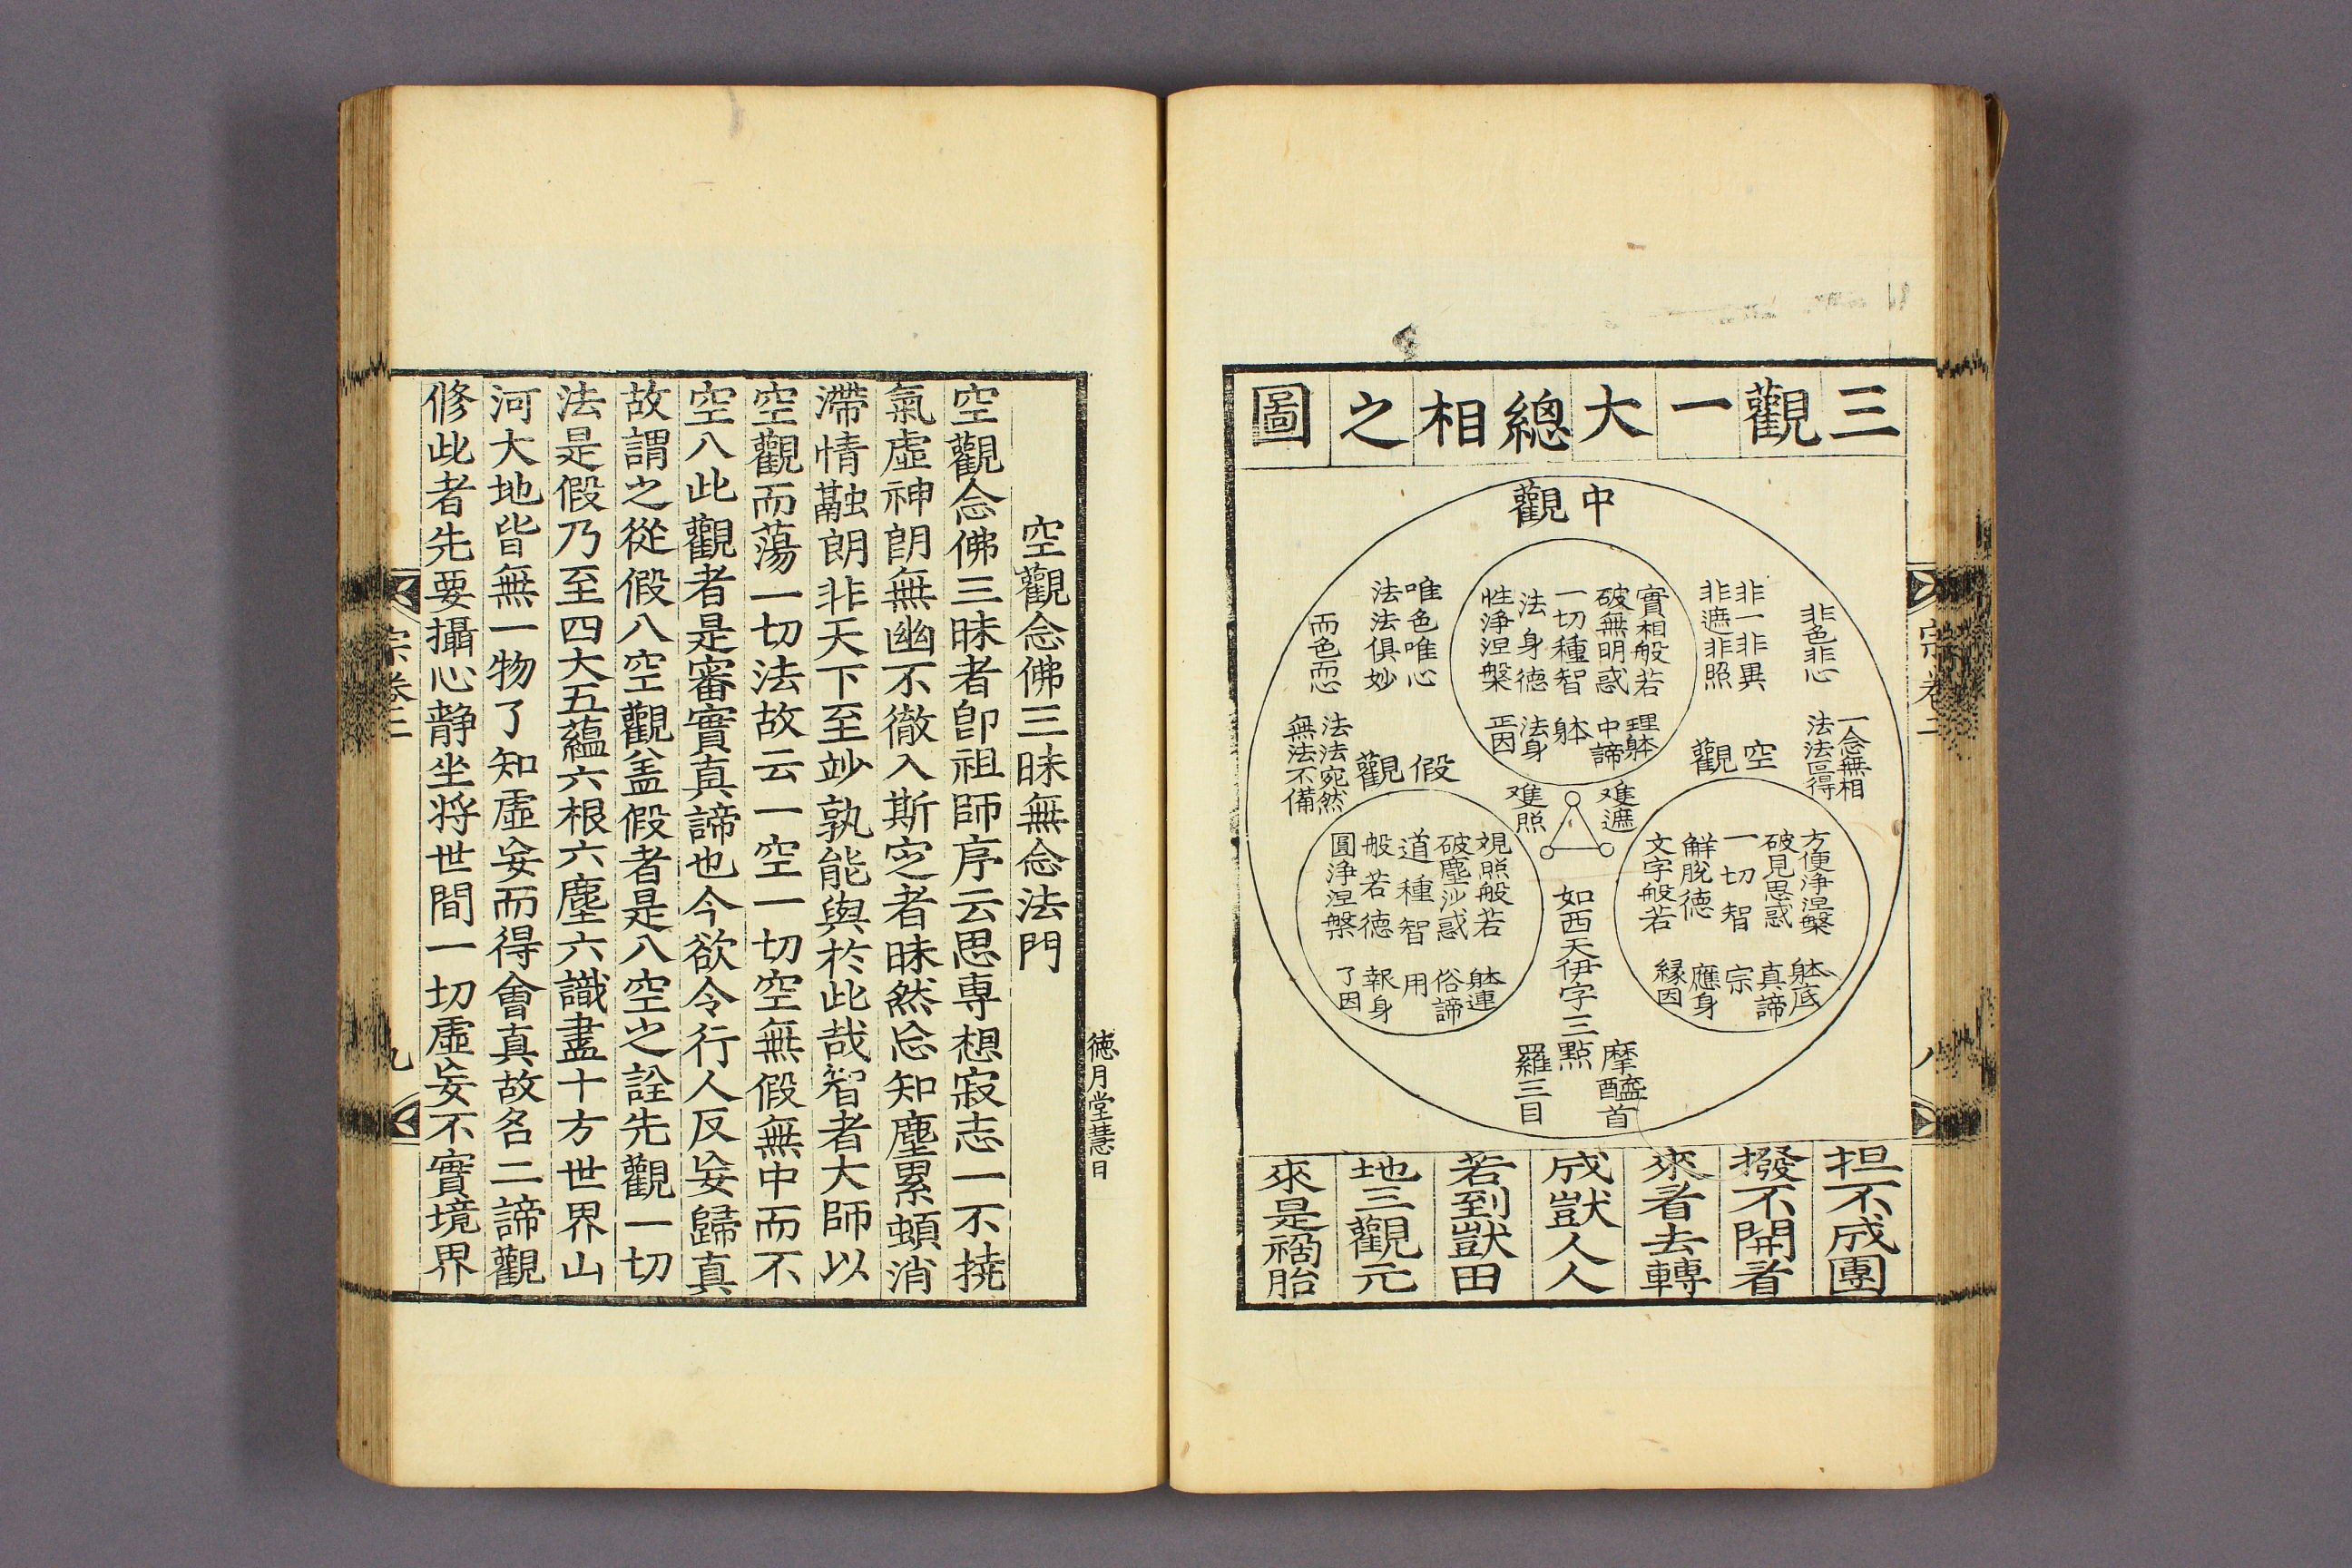 三觀一大總相之圖
中觀
非色非心
非一非異
非遮非照
唯色唯心
法法俱妙
而色而心
實相般若
破無明惑
一切種智
法身德
性淨涅槃
理躰
中諦
躰
法身
正因
空觀
一念無相
法法叵得
假觀
法法宛然
無法不備
雙遮
雙照
方便淨涅槃
破見思惑
一切智
解脫德
文字般若
躰底
真諦
宗
應身
緣因
覌照般若
破塵沙惑
道種智
般若德
圓淨涅槃
躰連
俗諦
用
報身
了因
如西天伊字三點
摩醯首
羅三目
担不成團
撥不開者
來者去轉
成獃人人
若到獃田
地三觀元
來是禍胎
宗卷二
八
德月堂慧日
空觀念佛三昧無念法門
空觀念佛三昧者卽祖師序云思專想寂志一不撓
氣虛神朗無幽不徹入斯定者昧然忘知塵累頓消
滯情融朗非天下至妙孰能與於此哉智者大師以
空觀而蕩一切法故云一空一切空無假無中而不
空八此觀者是審實真諦也今欲令行人反妄歸真
故謂之從假八空觀盖假者是八空之詮先觀一切
法是假乃至四大五蘊六根六塵六識盡十方世界山
河大地皆無一物了知虛妄而得會真故名二諦觀
修此者先要攝心靜坐將世間一切虛妄不實境界
宗卷二
九